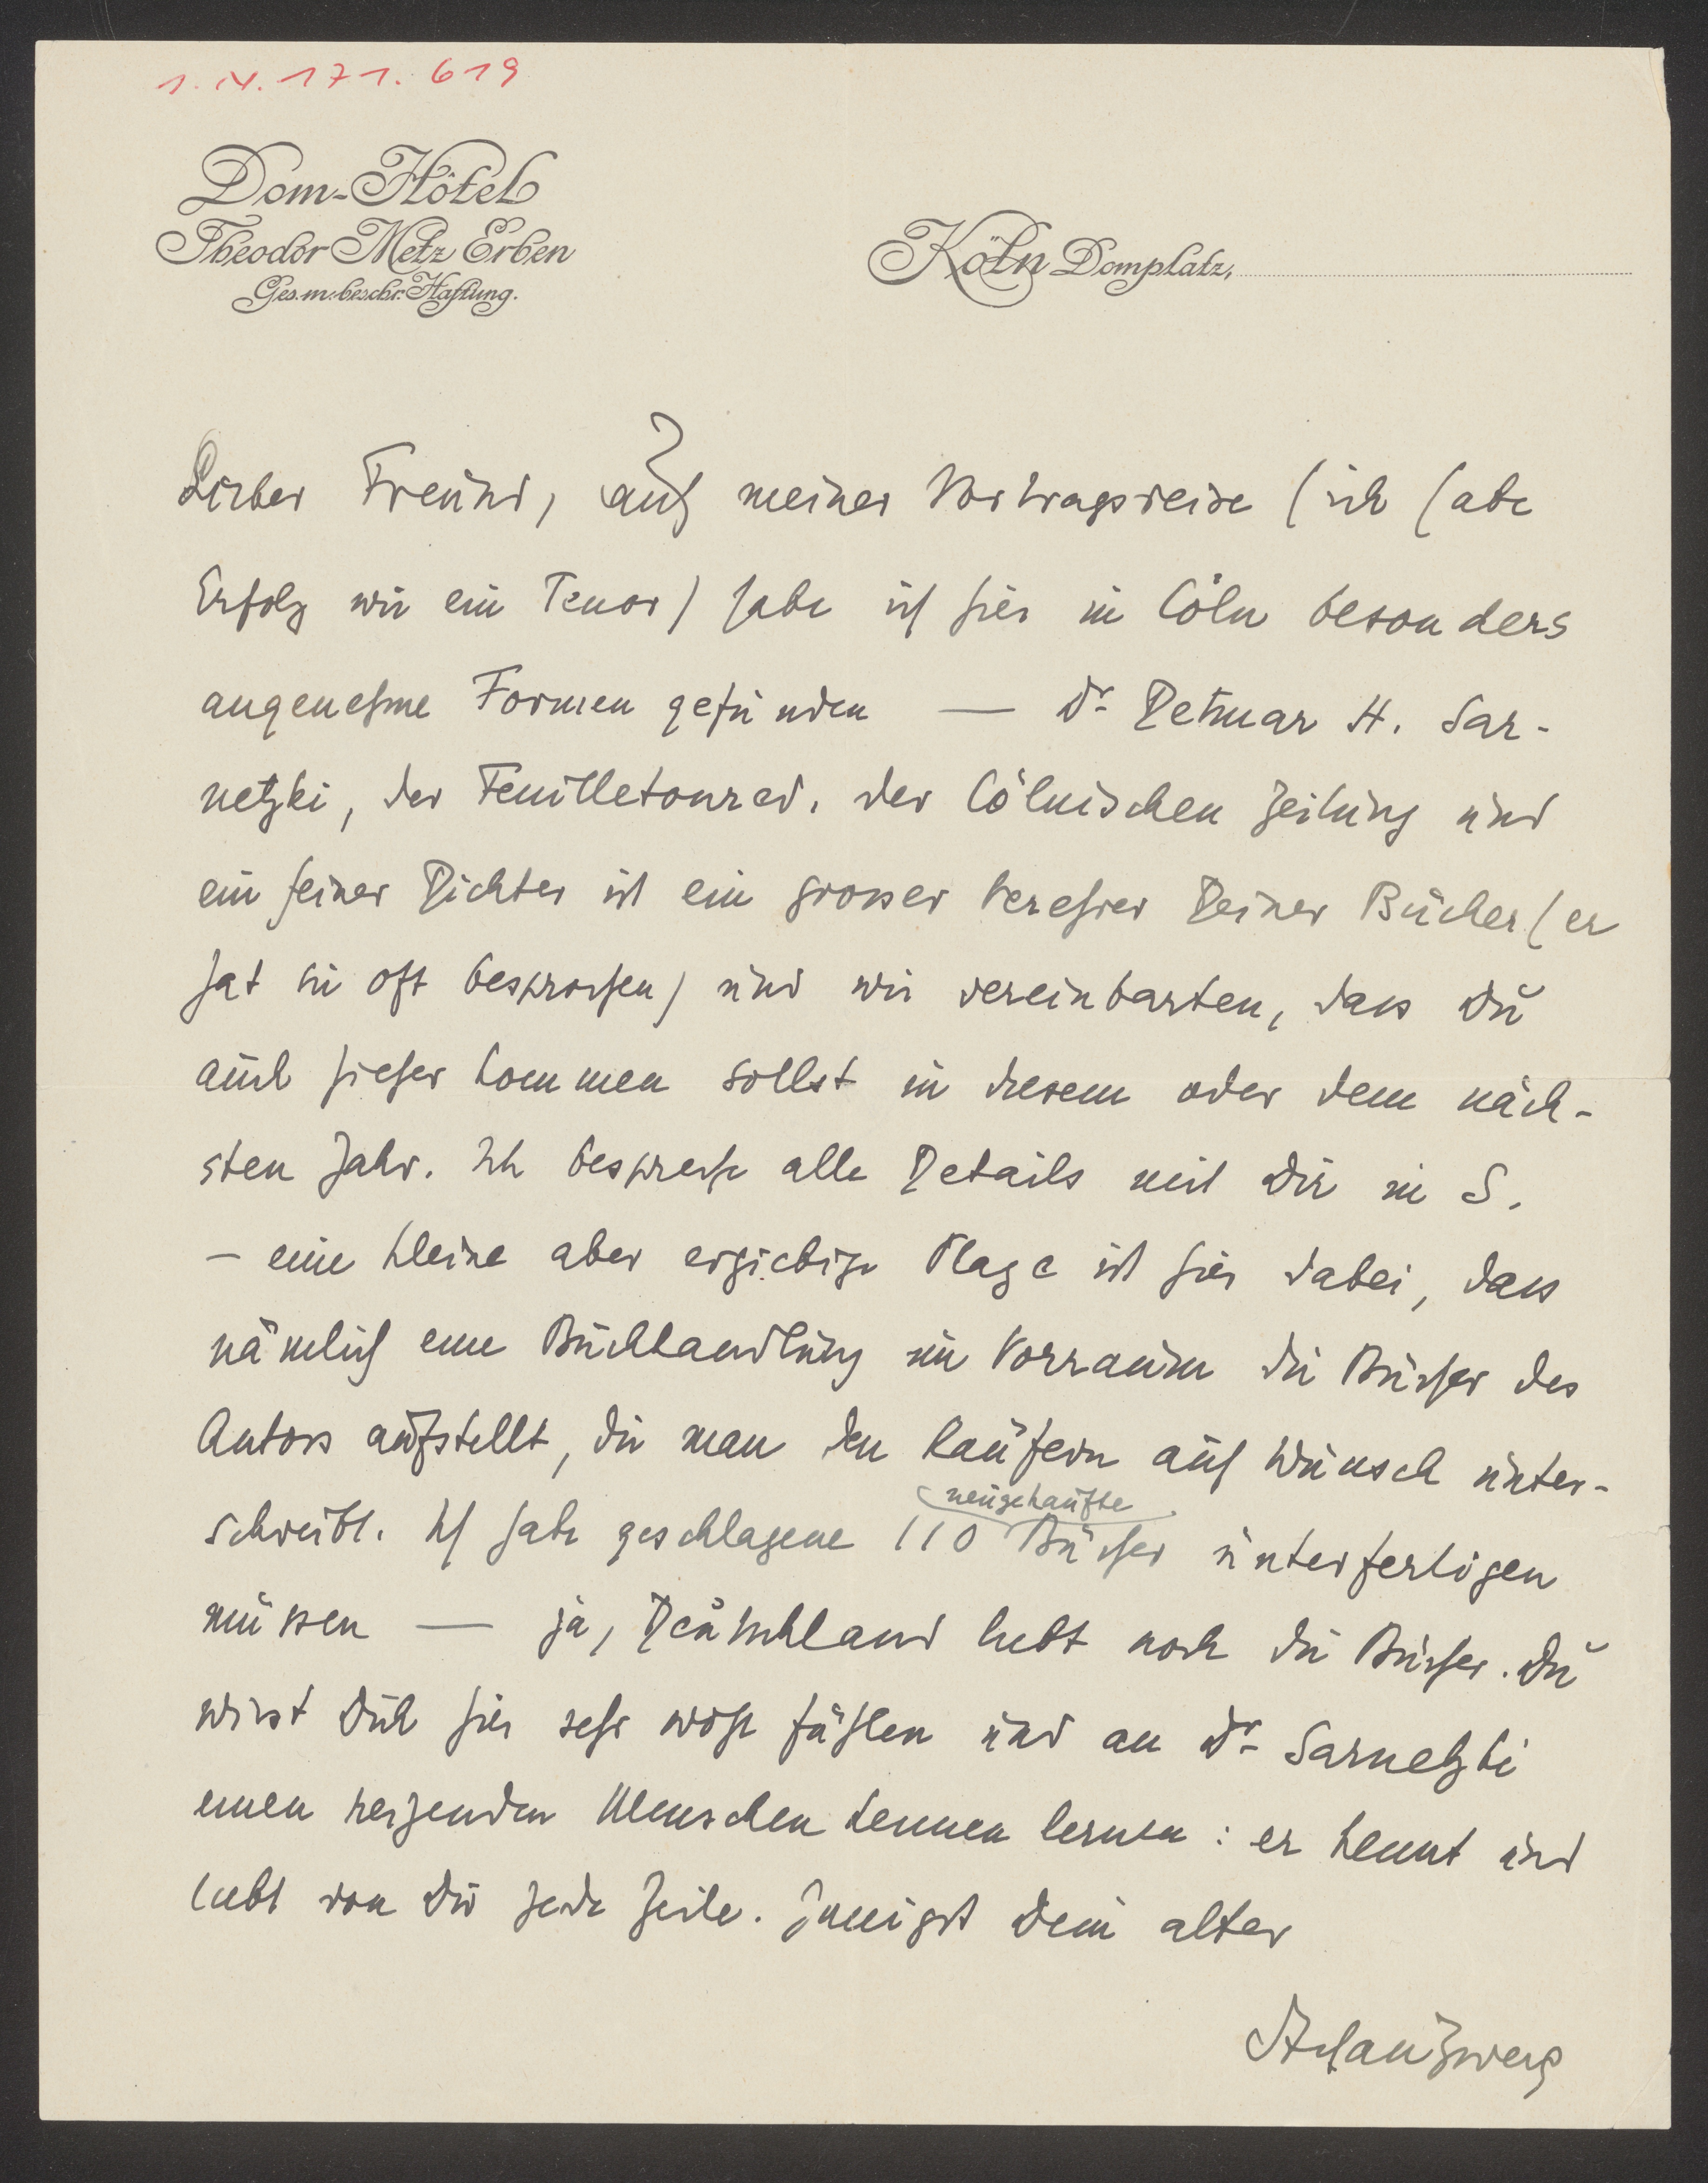 1. IV. 171. 619
Dom-Hôtel
Theodor Metz Erben
Ges. m. beschr. Haftung.
Köln Domplatz,
Lieber Freund, auf meiner Vortragsreise (ich habe
Erfolg wie ein Tenor) habe ich hier in Cöln besonders
angenehme Formen gefunden — Dr Detmar H. Sar-
netzki, der Feuilletonred. der Cölnischen Zeitung und
ein feiner Dichter ist ein grosser Verehrer Deiner Bücher (er
hat sie oft besprochen) und wir vereinbarten, dass Du
auch hieher kommen sollst in diesem oder dem näch-
sten Jahr. Ich bespreche alle Details mit Dir in S.
– eine kleine aber ergiebige Plage ist hier dabei, dass
nämlich eine Buchhandlung im Vorraum die Bücher des
Autors aufstellt, die man den Käufern auf Wunsch unter-
schreibt. Ich habe geschlagene 110 neugekaufte Bücher unterfertigen
müssen — ja, Deutschland liebt noch die Bücher. Du
wirst Dich hier sehr wohl fühlen und an Dr Sarnetzki
einen reizenden Menschen kennen lernen: er kennt und
liebt von Dir jede Zeile. Innigst Dein alter
Stefan Zweig